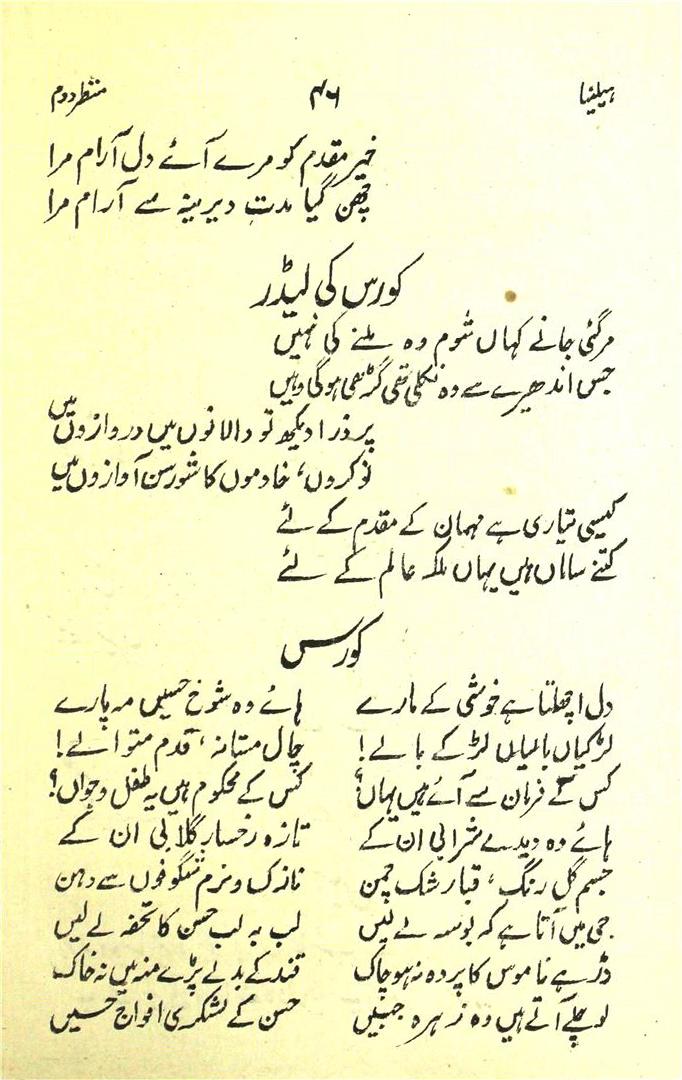 ہیلینا ۴۶ منظر دوم
خیر مقدم کو مرے آئے دل آرام مرا
چھن گیا مدتِ دیرینہ سے آرام مرا
کورس کی لیڈر
مر گئی جانے کہاں شوم وہ ملنے کی نہیں
جس اندھیرے سے وہ نکلی تھی گڑھی ہوگی وہیں
پر ذرا دیکھ تو دالانوں میں دروازوں میں
نوکروں، خادموں کا شور سن آوازوں میں
کیسی تیاری ہے مہمان کے مقدم کے لئے
کتنے ساماں ہیں یہاں ملکہ عالم کے لئے
کورس
دل اچھلتا ہے خوشی کے مارے ہائے وہ شوخ حسیں مہ پارے
لڑکیاں بالیاں لڑکے بالے! چال مستانہ، قدم متوالے!
کس کے فرمان سے آئے ہیں یہاں؟ کس کے محکوم ہیں یہ طفل و جواں؟
ہائے وہ دیدے شرابی ان کے تازہ رخسار گلابی ان کے
جسم گل رنگ، قبا رشک چمن نازک و نرم شگوفوں سے دہن
جی میں آتا ہے کہ بوسہ لے لیں لب بہ لب حسن کا تحفہ لے لیں
ڈر ہے ناموس کا پردہ نہ ہو چاک قند کے بدلے پڑے منہ میں نہ خاک
لو چلے آتے ہیں وہ زہرہ جبیں حسن کے لشکری افواجِ حسیں